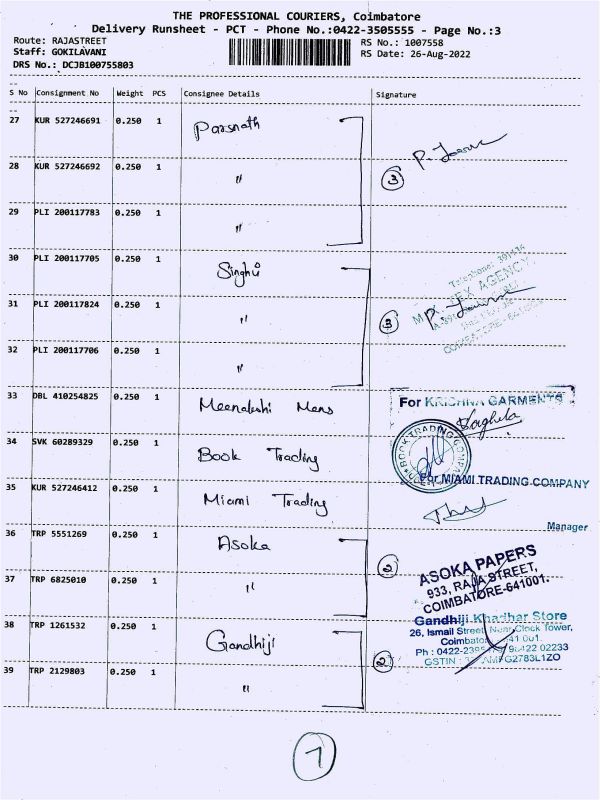 THE PROFESSIONAL COURIERS, Coimbatore
Delivery Runsheet - PCT - Phone No.:0422-3505555 - Page No.:3
Route: RAJASTREET
RS No.: 1007558
Staff: GOKILAVANI
RS Date: 26-Aug-2022
DRS No.: DCJB100755803
S No Consignment No Weight PCS Consignee Details Signature
27 KUR 527246691 0.250 1 Parsnath
28 KUR 527246692 0.250 1 〃 3
29 PLI 200117783 0.250 1 〃
30 PLI 200117705 0.250 1 Singhvi
31 PLI 200117824 0.250 1 〃 3
TEX AGENCY
32 PLI 200117706 0.250 1 〃
33 DBL 410254825 0.250 1 Meenakshi Mens
For KRISHNA GARMENTS
34 SVK 60289329 0.250 1 Book Trading
BOOK TRADING
35 KUR 527246412 0.250 1 Miami Trading
For MIAMI TRADING COMPANY
Manager
36 TRP 5551269 0.250 1 Asoka
37 TRP 6825010 0.250 1 〃 2
ASOKA PAPERS
933, RAJA STREET,
COIMBATORE-641001.
38 TRP 1261532 0.250 1 Gandhiji
39 TRP 2129803 0.250 1 〃 2
Gandhiji Khadhar Store
26, Ismail Street, Near Clock Tower,
Ph : 0422-2395
GSTIN :
1